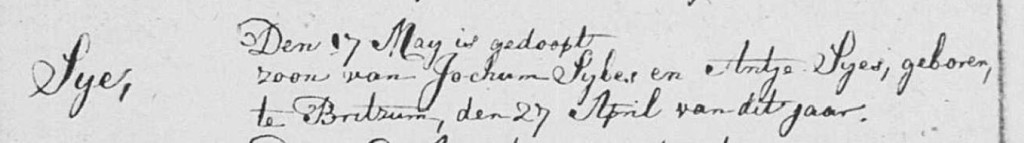 Sye,
Den 17 May is gedoopt
zoon van Jochum Sybes en Antje Syes, geboren,
te Britzum, den 27 April van dit jaar.